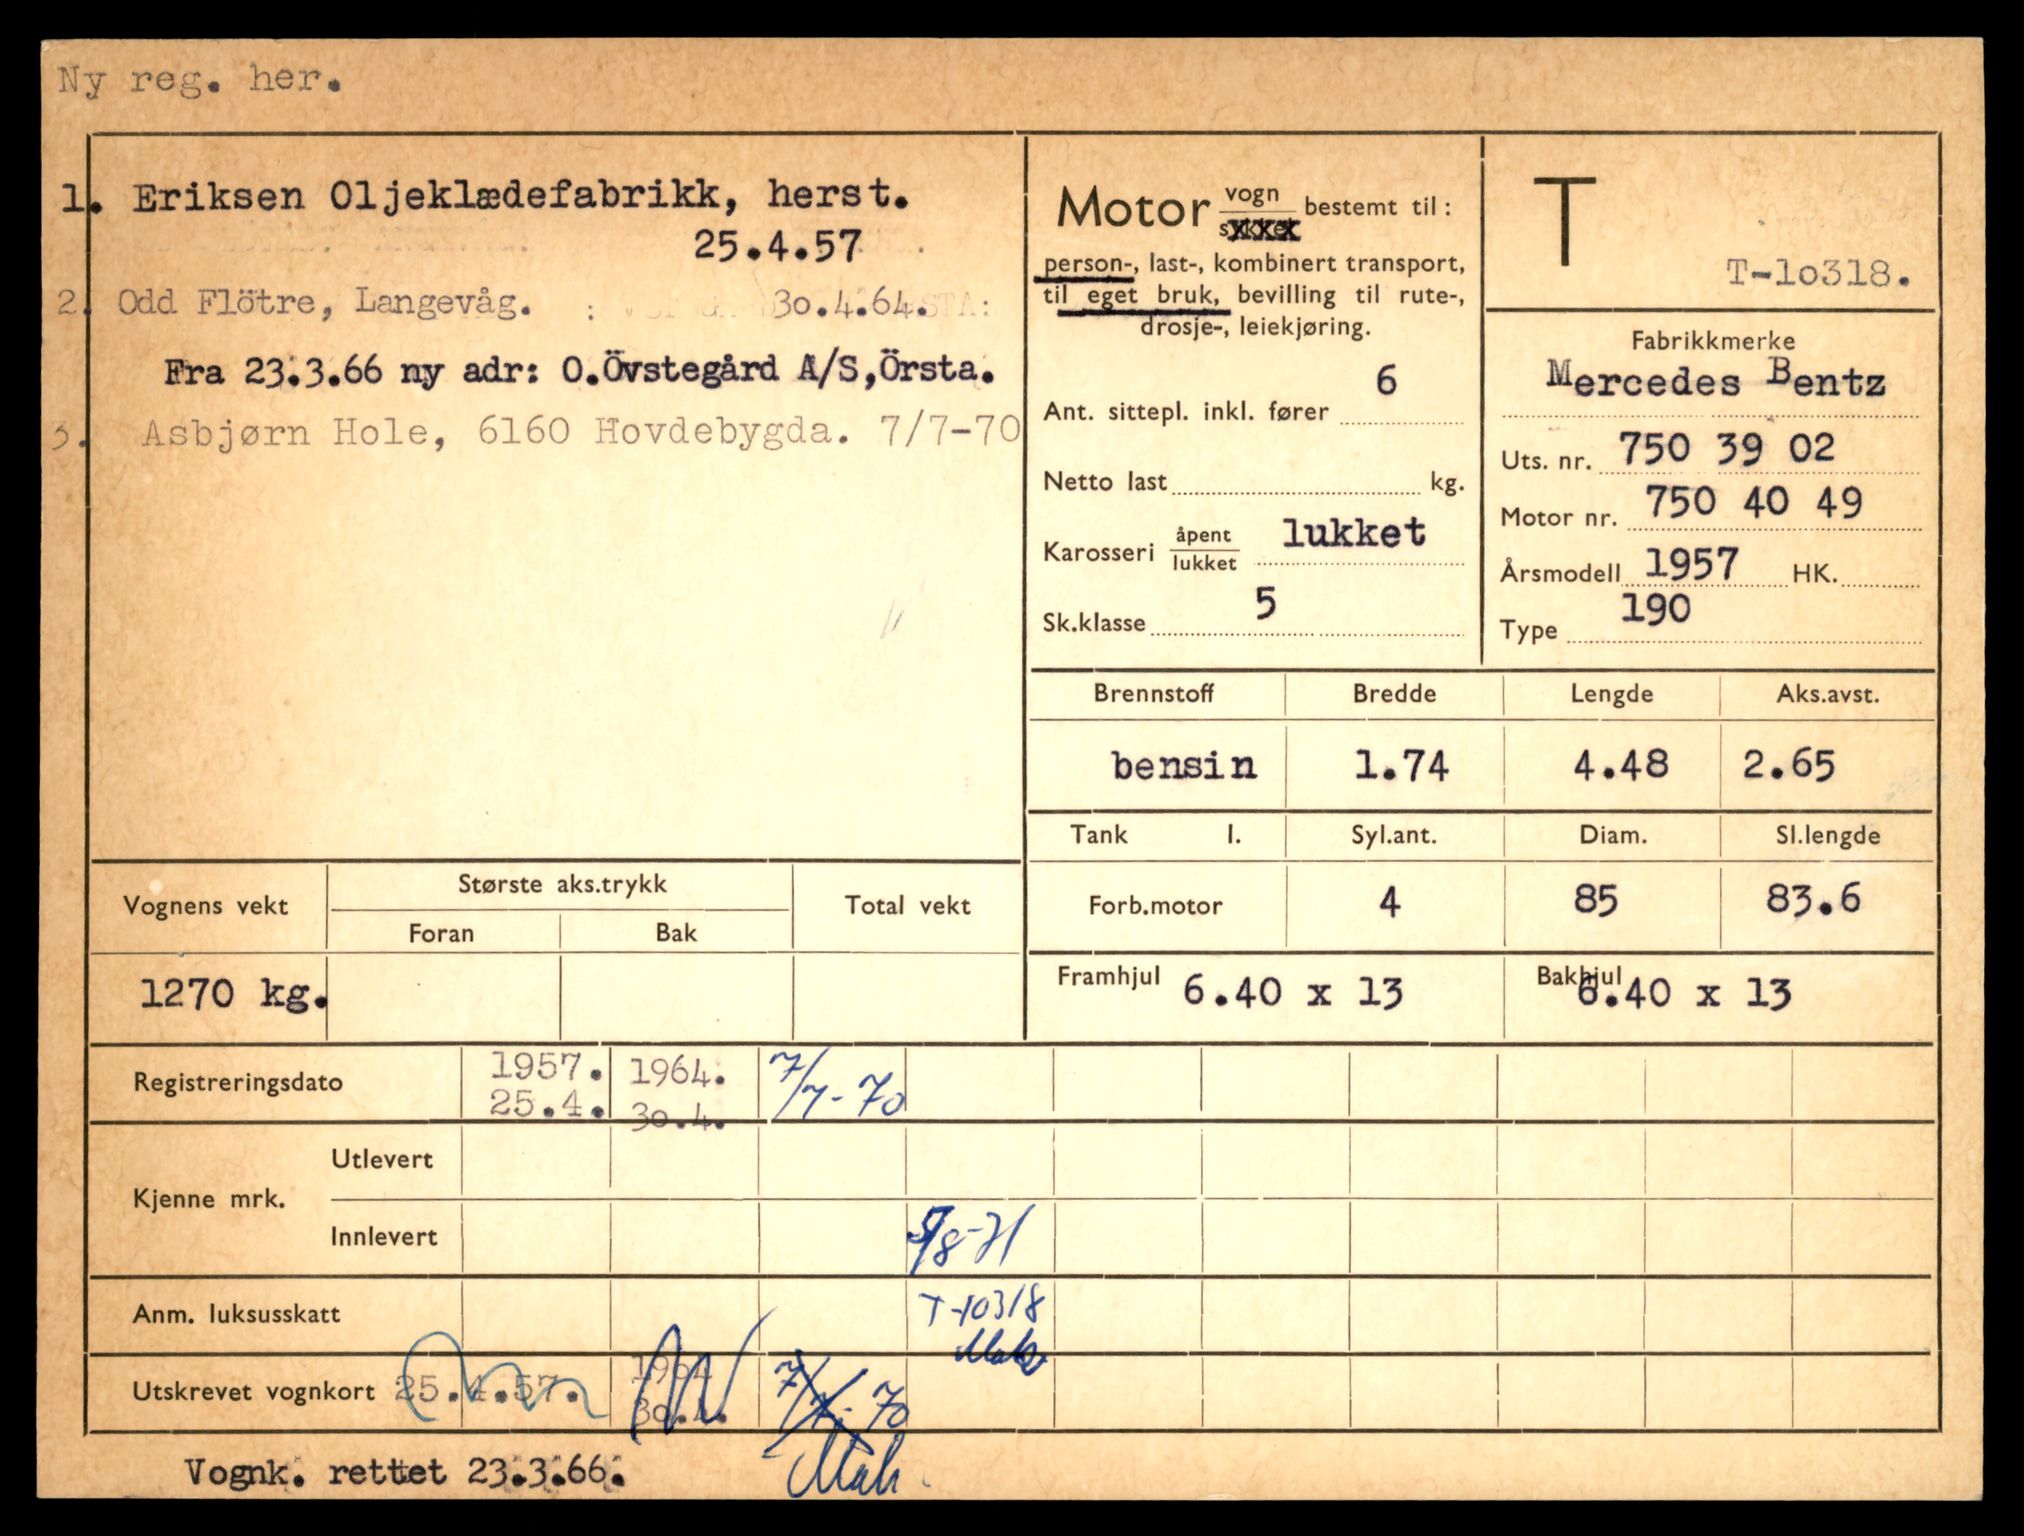 Ny reg. her.
1. Eriksen Oljeklædefabrikk, herst.
25.4.57
2. Odd Flötre, Langevåg. 30.4.64.
Fra 23.3.66 ny adr: O.Övstegård A/S,Örsta.
3. Asbjørn Hole, 6160 Hovdebygda. 7/7-70
Motor vogn bestemt til:
sykkel
person-, last-, kombinert transport,
til eget bruk, bevilling til rute-,
drosje-, leiekjøring.
Ant. sittepl. inkl. fører 6
Netto last kg.
Karosseri åpent lukket
lukket
Sk.klasse 5
T
T-10318.
Fabrikkmerke
Mercedes Bentz
Uts. nr. 750 39 02
Motor nr. 750 40 49
Årsmodell 1957 HK.
Type 190
Brennstoff Bredde Lengde Aks.avst.
bensin 1.74 4.48 2.65
Tank l. Syl.ant. Diam. Sl.lengde
Forb.motor 4 85 83.6
Framhjul 6.40 x 13 Bakhjul 6.40 x 13
Vognens vekt Største aks.trykk Total vekt
Foran Bak
1270 kg.
Registreringsdato 1957. 1964. 7/7-70
25.4. 30.4.
Utlevert
Kjenne mrk.
Innlevert 5/8-71
Anm. luksusskatt T-10318
Utskrevet vognkort 25.4.57. 1964 7/7-70
30.4.
Vognk. rettet 23.3.66.